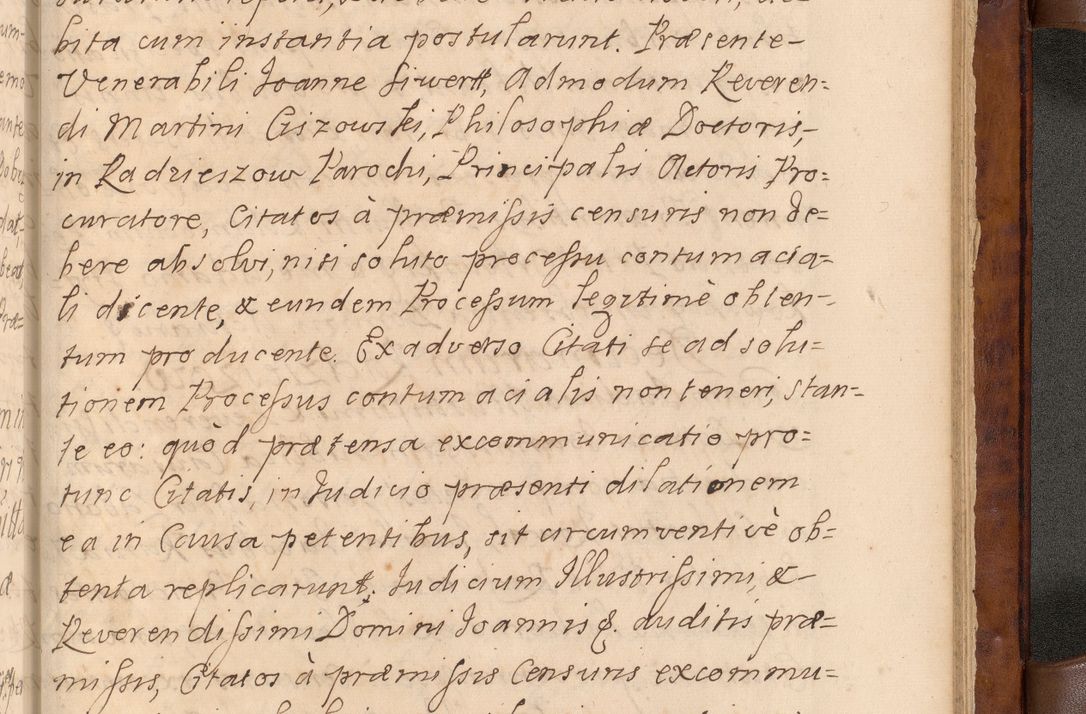 bita cum instantia postularunt. Præsente
Venerabili Joanne Siwertt, Admodum Reveren=
di Martini Gizowski, Philosophiæ Doctoris,
in Radzieszow Parochi, Principalis Actoris Pro=
curatore, Citatos à præmissis censuris non de=
bere absolvi, nisi soluto processu contumacia=
li dicente, & eundem Processum legitimè obten-
tum producente. Ex adverso Citati se ad solu=
tionem Processus contumacialis non teneri, stan=
te eo: quòd prætensa excommunicatio pro=
tunc Citatis, in Judicio præsenti dilationem
ea in Causa petentibus, sit circumventivè ob=
tenta replicarunt. Judicium Illustrissimi, &
Reverendissimi Domini Joannis &. auditis præ=
missis, Citatos à præmissis Censuris excommu=